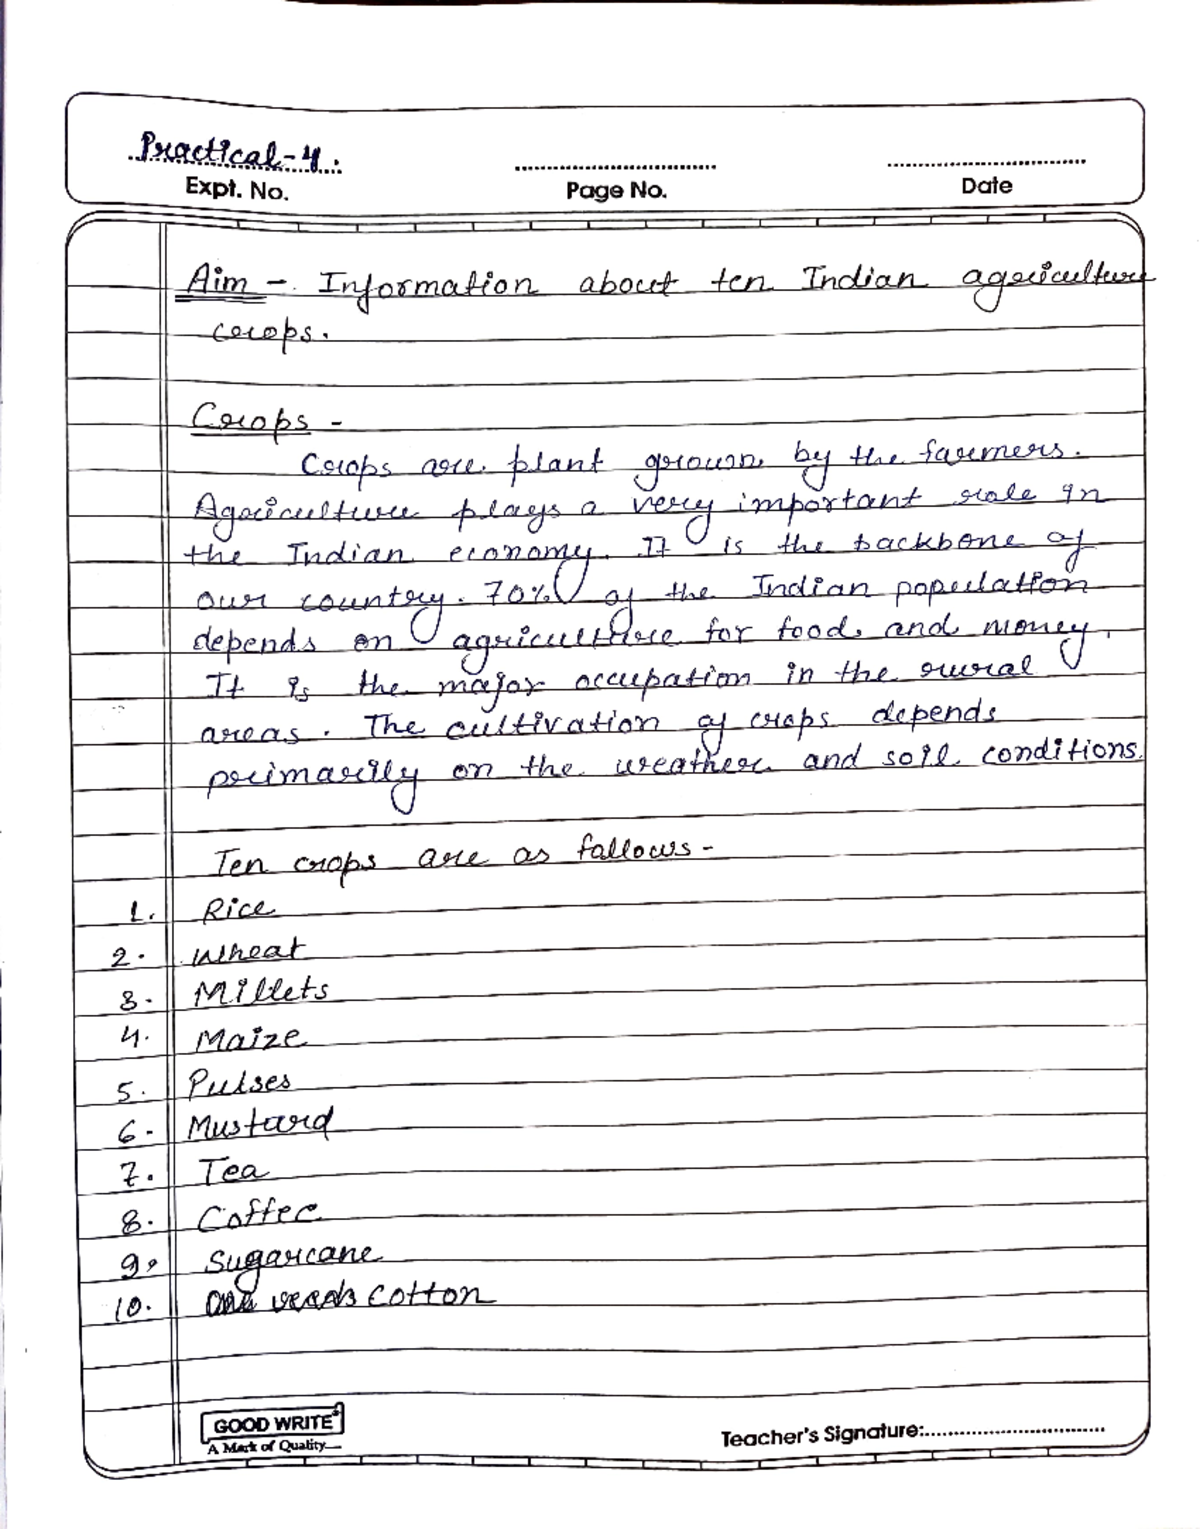 Practical-4.
Expt. No. Page No. Date
Aim - Information about ten Indian agriculture
crops.
Crops -
Crops are plant grown by the farmers.
Agriculture plays a very important role in
the Indian economy. It is the backbone of
our country. 70% of the Indian population
depends on agriculture for food and money.
It is the major occupation in the rural
areas. The cultivation of crops depends
primarily on the weather and soil conditions.
Ten crops are as follows -
1. Rice
2. Wheat
3. Millets
4. Maize
5. Pulses
6. Mustard
7. Tea
8. Coffee
9. Sugarcane
10. cotton
GOOD WRITE
A Mark of Quality
Teacher's Signature: